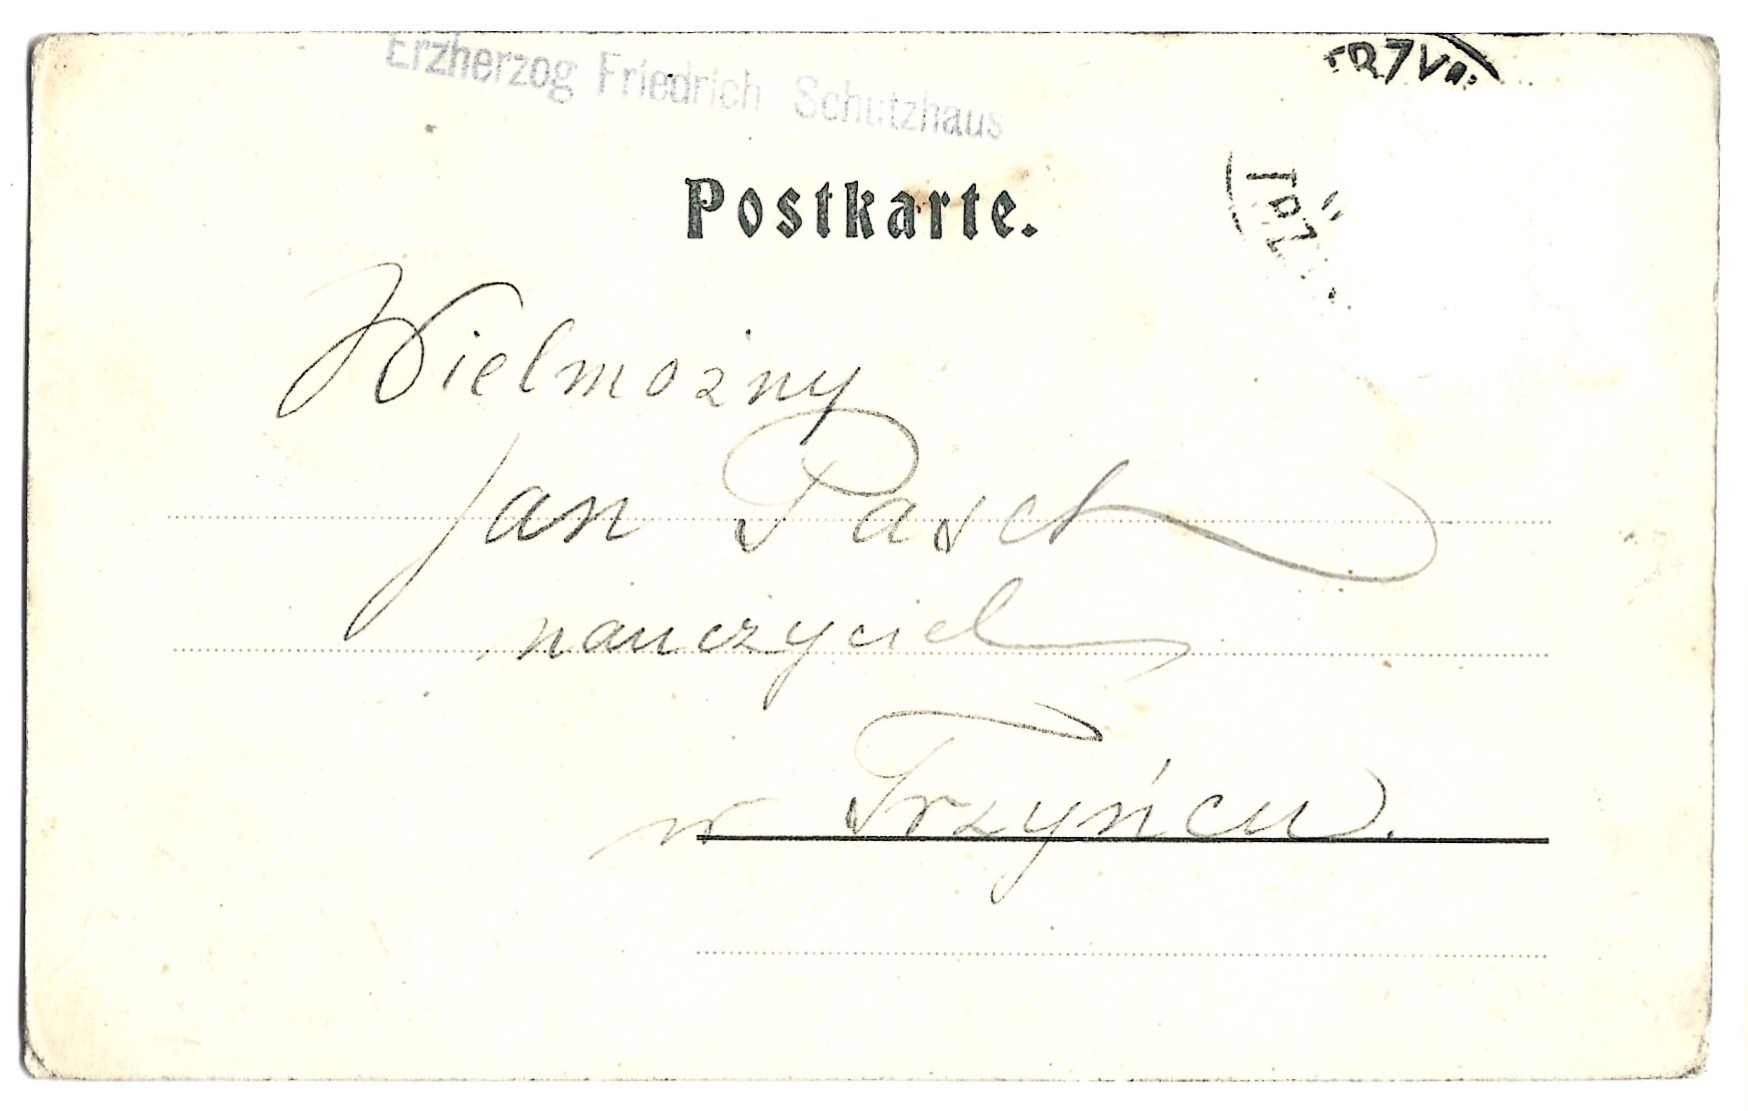 Erzherzog Friedrich Schutzhaus
Postkarte.
TRZ
Wielmożny
Jan Pasch
nauczyciel
w Trzyńcu.